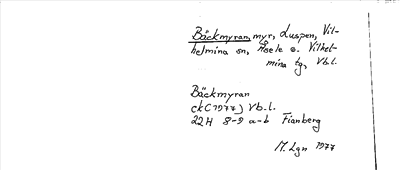 Bäckmyran, myr, Luspen, Vil-
helmina sn, Åsele o. Vilhel-
mina tg, Vb.l.
Bäckmyran
ekC1977) Vb.l.
22H 8-9 a-b Fianberg
M. Lgn 1977